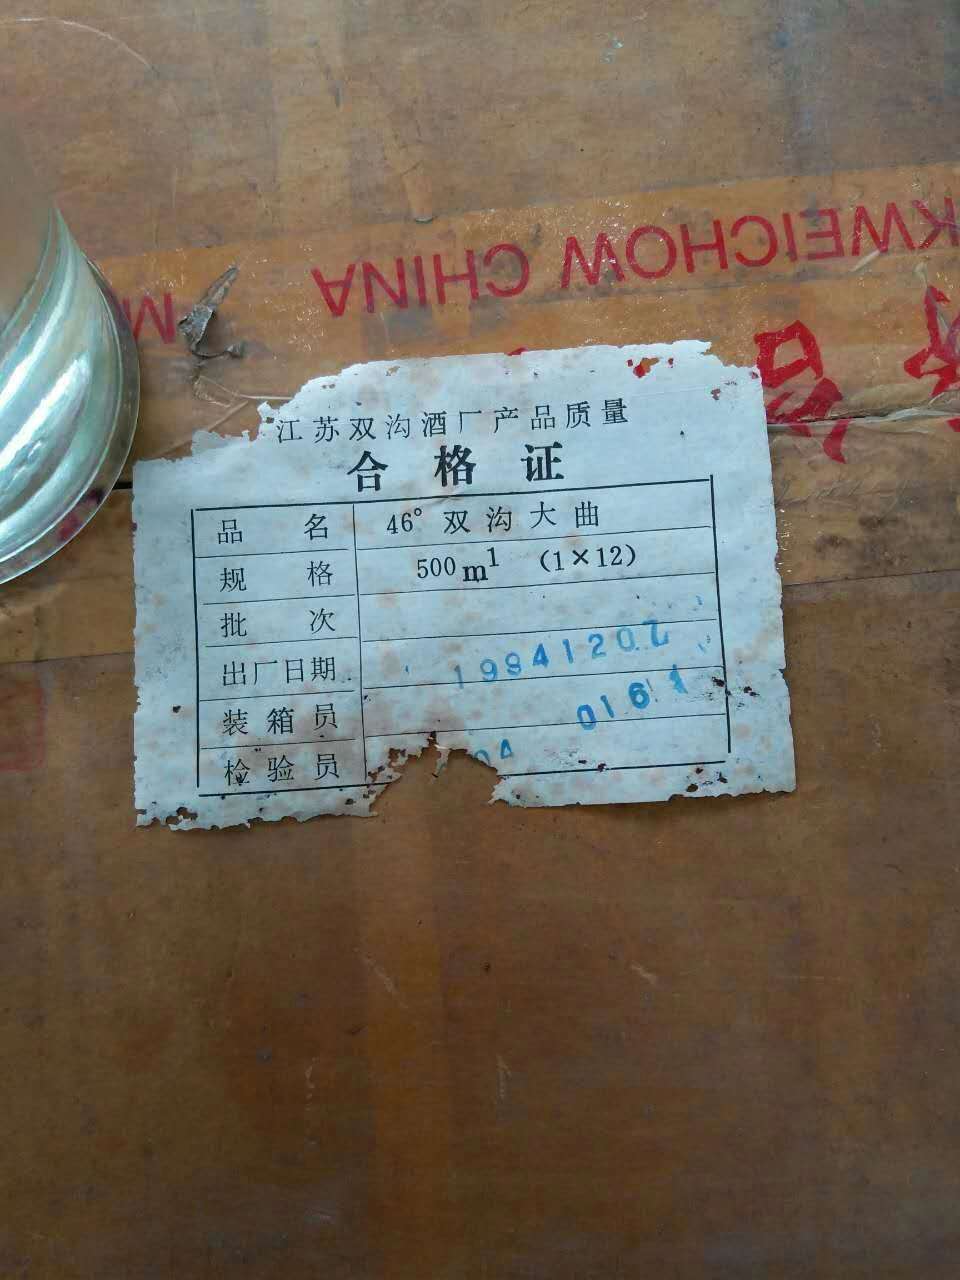 KWEICHOW CHINA
江苏双沟酒厂产品质量
合格证
品名 46° 双沟大曲
规格 500ml (1×12)
批次
出厂日期 19941202
装箱员 0161
检验员 04